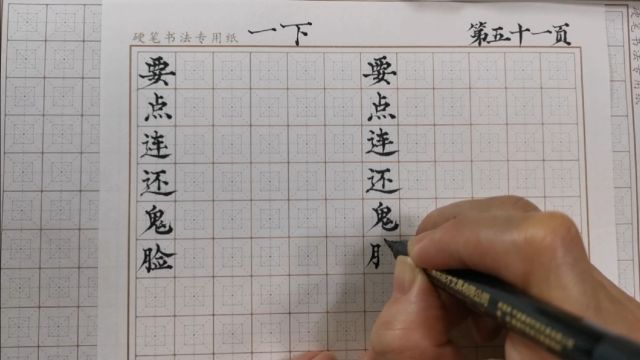 硬笔书法专用纸 一下 第五十一頁
要点连还鬼脸
要点连还鬼月